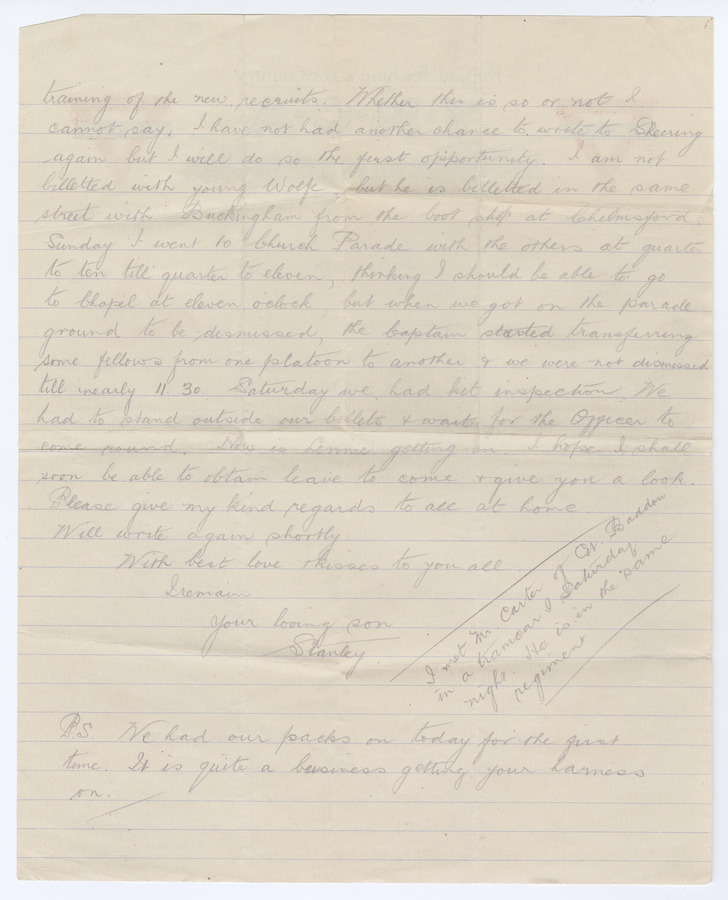 training of the new recruits. Whether this is so or not I
cannot say. I have not had another chance to write to Sheering
again but I will do so the first opportunity. I am not
billetted with young Wolfe, but he is billetted in the same
street with Buckingham from the boot shop at Chelmsford.
Sunday I went to Church Parade with the others at quarter
to ten till quarter to eleven, thinking I should be able to go
to Chapel at eleven oclock, but when we got on the parade
ground to be dismissed, the Captain started transferring
some fellows from one platoon to another & we were not dismissed
till nearly 11.30. Saturday we had kit inspection. We
had to stand outside our billets & wait for the Officer to
come round. How is Lennie getting on. I hope I shall
soon be able to obtain leave to come & give you a look.
Please give my kind regards to all at home.
Will write again shortly.
With best love & kisses to you all
I remain
your loving son
Stanley.
I met Mr. Carter of Gt. Baddow
in a tramcar Saturday
night. He is in the same
regiment
P.S. We had our packs on today for the first
time. It is quite a business getting your harness
on.